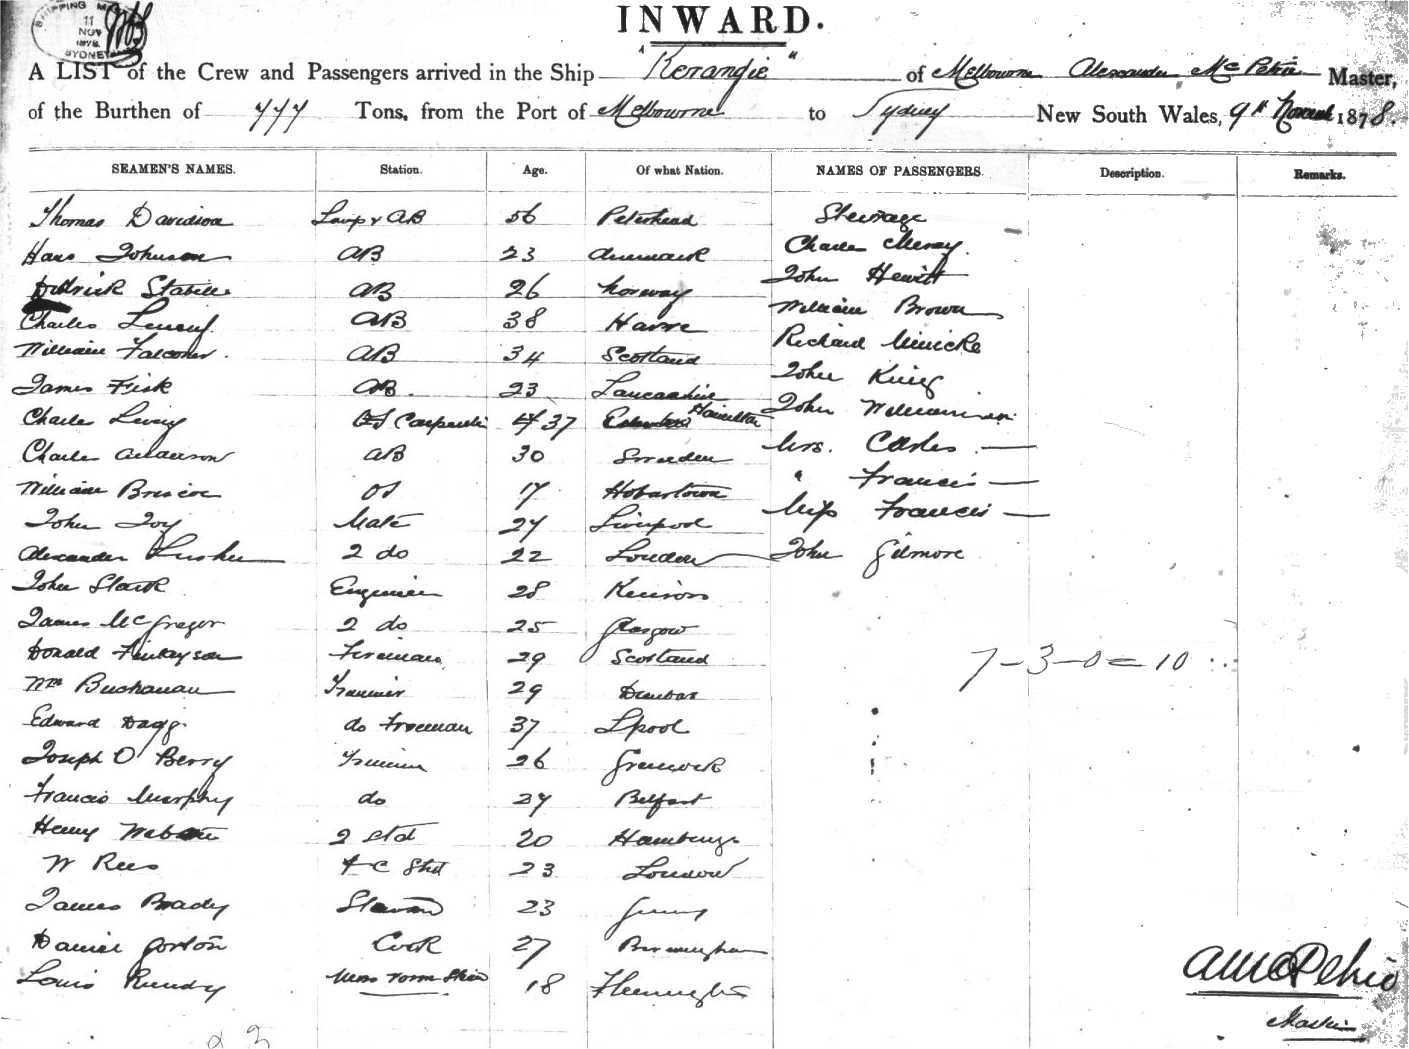 SHIPPING MA
11
NOV
1878
SYDNEY
INWARD.
A LIST of the Crew and Passengers arrived in the Ship "Kerangie" of Melbourne Alexander McPetrie Master,
of the Burthen of 777 Tons, from the Port of Melbourne to Sydney New South Wales, 9th November 1878.
SEAMEN'S NAMES. Station. Age. Of what Nation. NAMES OF PASSENGERS. Description. Remarks.
Thomas Davidson Lamp & AB 56 Peterhead Steerage
Hans Johnson AB 23 Denmark Charles
26 Norway John Hewitt
AB
Charles AB 38 Havre William Brown
William Falconer. AB 34 Scotland Richard
James Fisk AB. 23 Lancashire John King
Charles Carpenter 37 Hamilton John Williamson
Charles Anderson AB 30 Sweden Mrs.
William Briscoe OS 17 Hobartown " Francis
John Joy Mate 27 Liverpool Miss Francis
Alexander 2 do 22 London John Gilmore
John Stark Engineer 28
James McGregor 2 do 25 Glasgow
Donald Finlayson Fireman 29 Scotland 7-3-0=10
Wm Buchanan Trimmer 29 Dunbar
Edward Dagg. do Fireman 37 Lpool
Joseph O'Berry Trimmer 26 Greenock
Francis Murphy do 27 Belfast
Henry Webster 2 Std 20 Hamburgh
W Rees F C Std 23 London
James Brady 23
Daniel Gorton Cook 27 Birmingham
Louis Mess room 18
AMcPetrie
Master
23